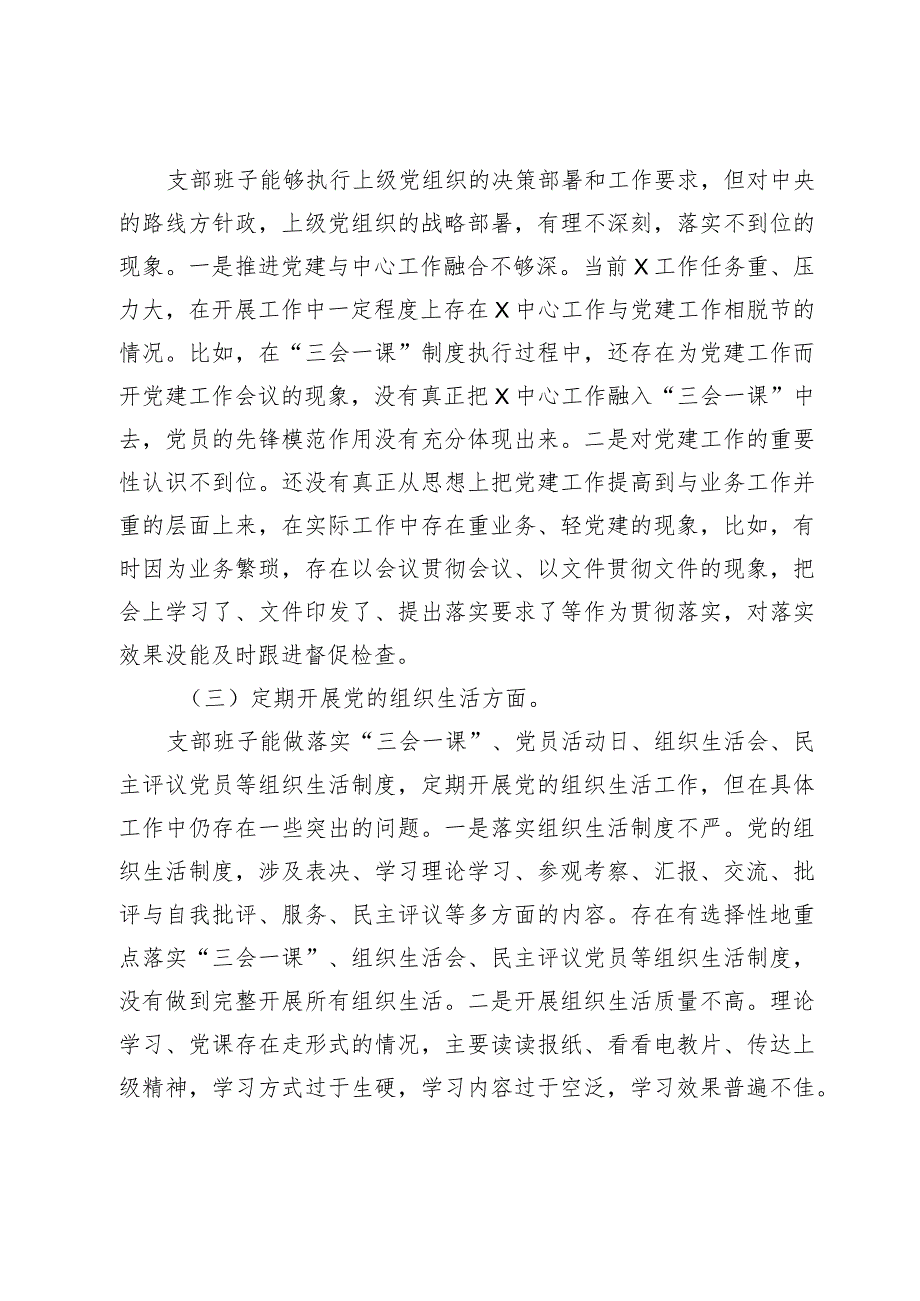 支部班子能够执行上级党组织的决策部署和工作要求，但对中央
的路线方针政，上级党组织的战略部署，有理不深刻，落实不到位的
现象。一是推进党建与中心工作融合不够深。当前X工作任务重、压
力大，在开展工作中一定程度上存在X中心工作与党建工作相脱节的
情况。比如，在“三会一课”制度执行过程中，还存在为党建工作而
开党建工作会议的现象，没有真正把X中心工作融入“三会一课”中
去，党员的先锋模范作用没有充分体现出来。二是对党建工作的重要
性认识不到位。还没有真正从思想上把党建工作提高到与业务工作并
重的层面上来，在实际工作中存在重业务、轻党建的现象，比如，有
时因为业务繁琐，存在以会议贯彻会议、以文件贯彻文件的现象，把
会上学习了、文件印发了、提出落实要求了等作为贯彻落实，对落实
效果没能及时跟进督促检查。
（三）定期开展党的组织生活方面。
支部班子能做落实“三会一课”、党员活动日、组织生活会、民
主评议党员等组织生活制度，定期开展党的组织生活工作，但在具体
工作中仍存在一些突出的问题。一是落实组织生活制度不严。党的组
织生活制度，涉及表决、学习理论学习、参观考察、汇报、交流、批
评与自我批评、服务、民主评议等多方面的内容。存在有选择性地重
点落实“三会一课”、组织生活会、民主评议党员等组织生活制度，
没有做到完整开展所有组织生活。二是开展组织生活质量不高。理论
学习、党课存在走形式的情况，主要读读报纸、看看电教片、传达上
级精神，学习方式过于生硬，学习内容过于空泛，学习效果普遍不佳。